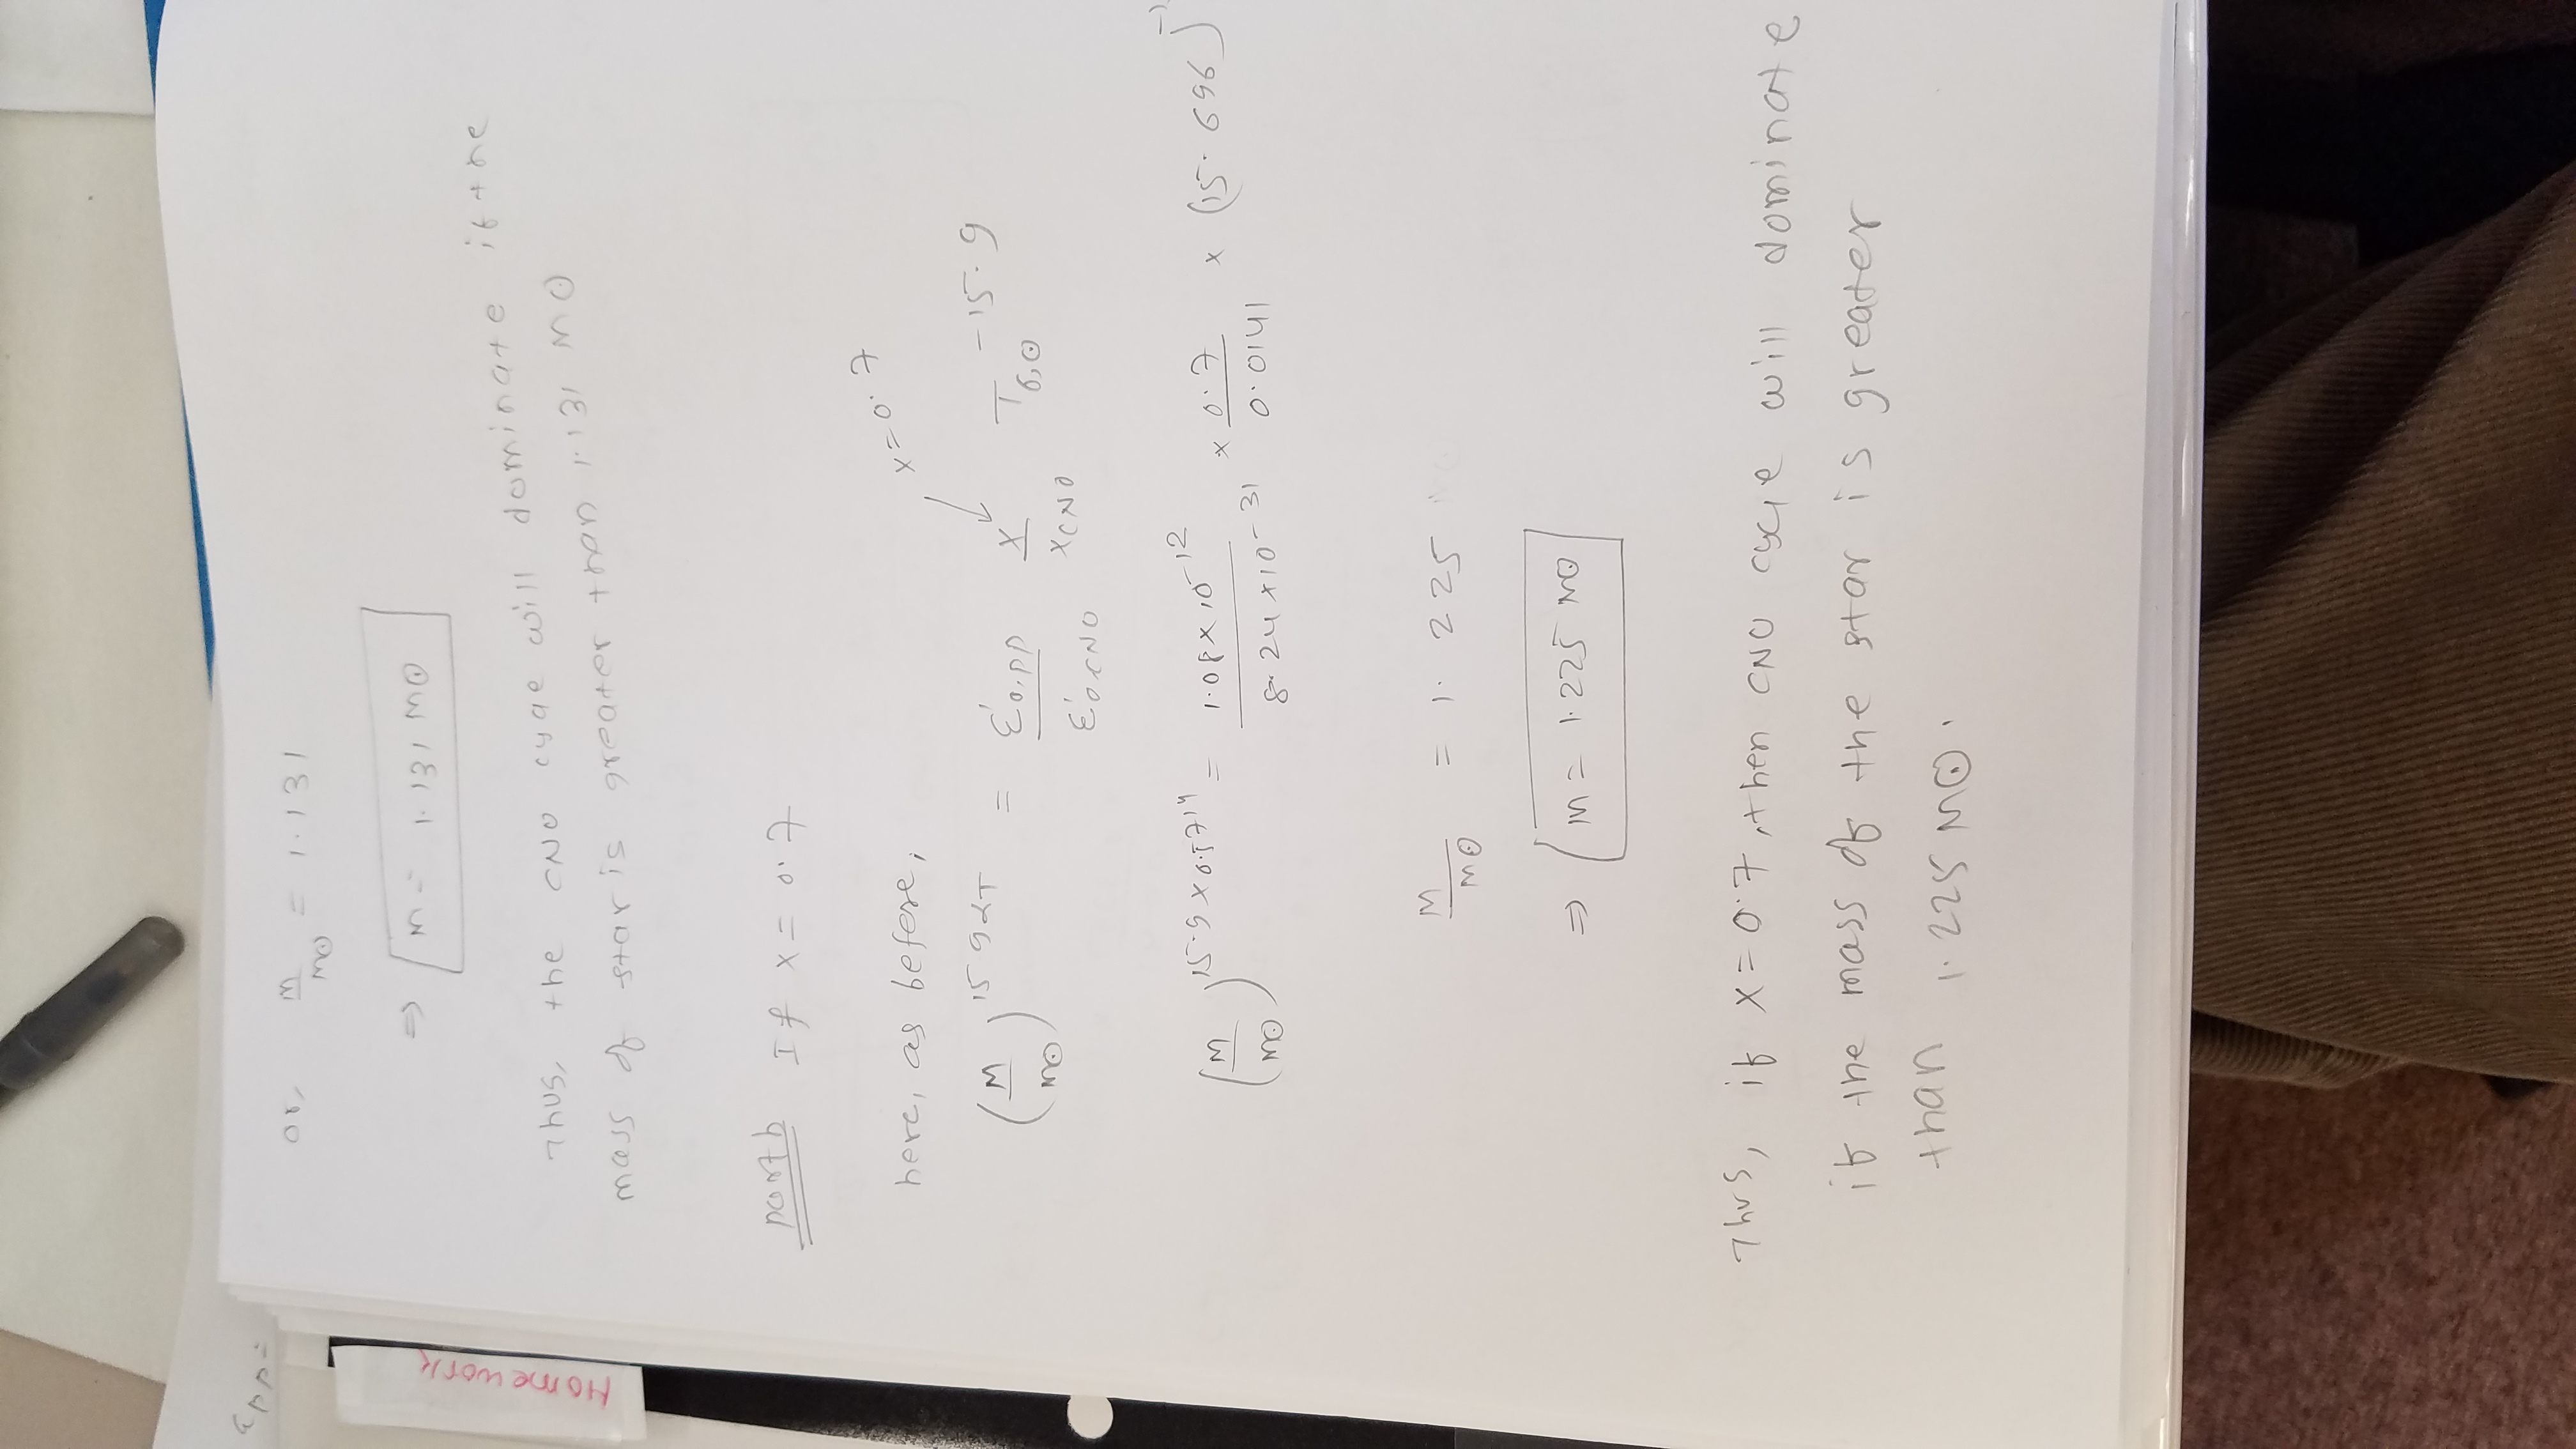 εpp=
Homework
or, M/M⊙ = 1.131
⇒ M = 1.131 M⊙
Thus, the CNO cycle will dominate if the
mass of star is greater than 1.131 M⊙
part b If x = 0.7
x = 0.7
here, as before,
(M/M⊙)^15.9αT = ε'o,pp/ε'o,CNO X/XCNO T6,⊙^-15.9
(M/M⊙)^15.9×0.5714 = 1.08×10^-12/8.24×10^-31 × 0.7/0.0141 × (15.696)^-1
M/M⊙ = 1.225
⇒ M = 1.225 M⊙
Thus, if X=0.7, then CNO cycle will dominate
if the mass of the star is greater
than 1.225 M⊙.